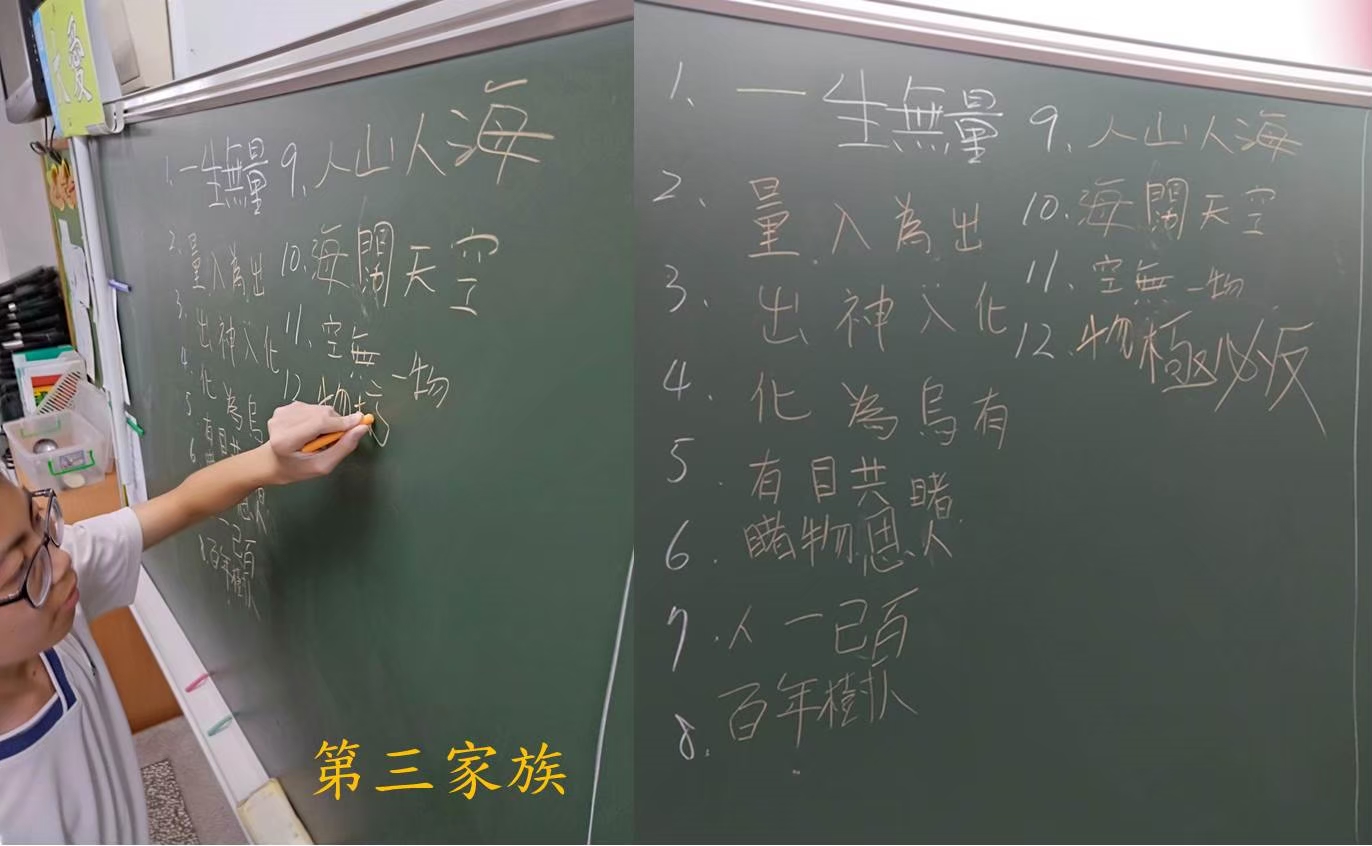 大愛
1、一生無量
2、量入為出
3、出神入化
4、化為烏有
5、有目共睹
6、
8、百年樹人
9、人山人海
10、海闊天空
11、空無一物
12、物
第三家族
1、一生無量
2、量入為出
3、出神入化
4、化為烏有
5.有目共睹
6.睹物恩人
7.人一已百
8.百年樹人
9、人山人海
10.海闊天空
11、空無一物
12.物極必反